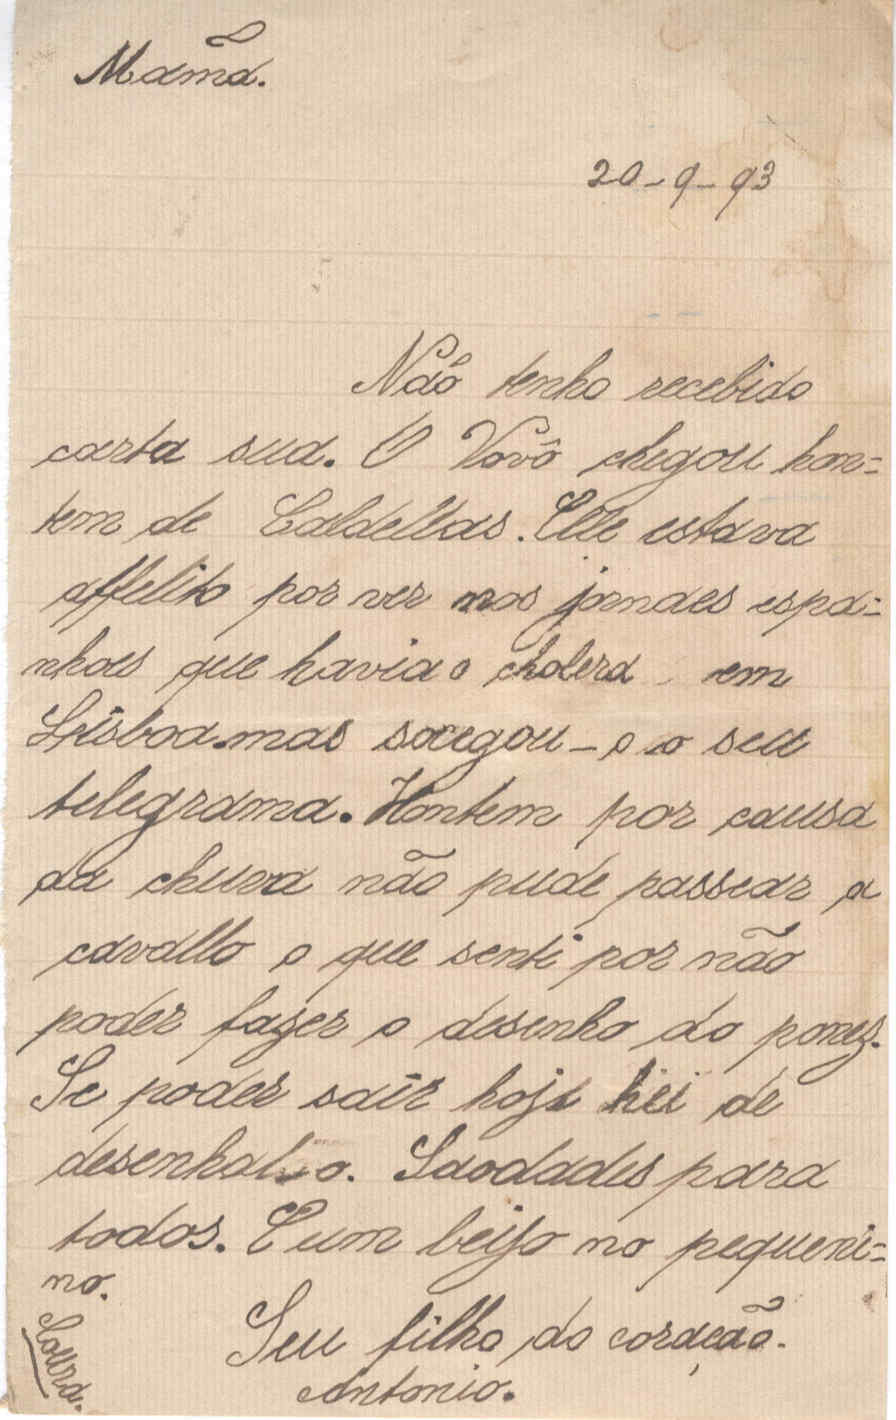 Mamã.
20-9-93
Não tenho recebido
carta sua. O Vovô chegou hon=
tem de Caldellas. Elle estava
affelito por ver nos jornaes espa=
nhoes que havia o cholera em
Lisboa. mas socegou-o o seu
telegrama. Hontem por causa
da chuva não pude passear a
cavallo o que senti por não
poder fazer o desenho do poney.
Se poder saír hoje hei de
desenhal-o. Saodades para
todos. E um beijo no pequeni=
no.
Seu filho do coração.
Antonio.